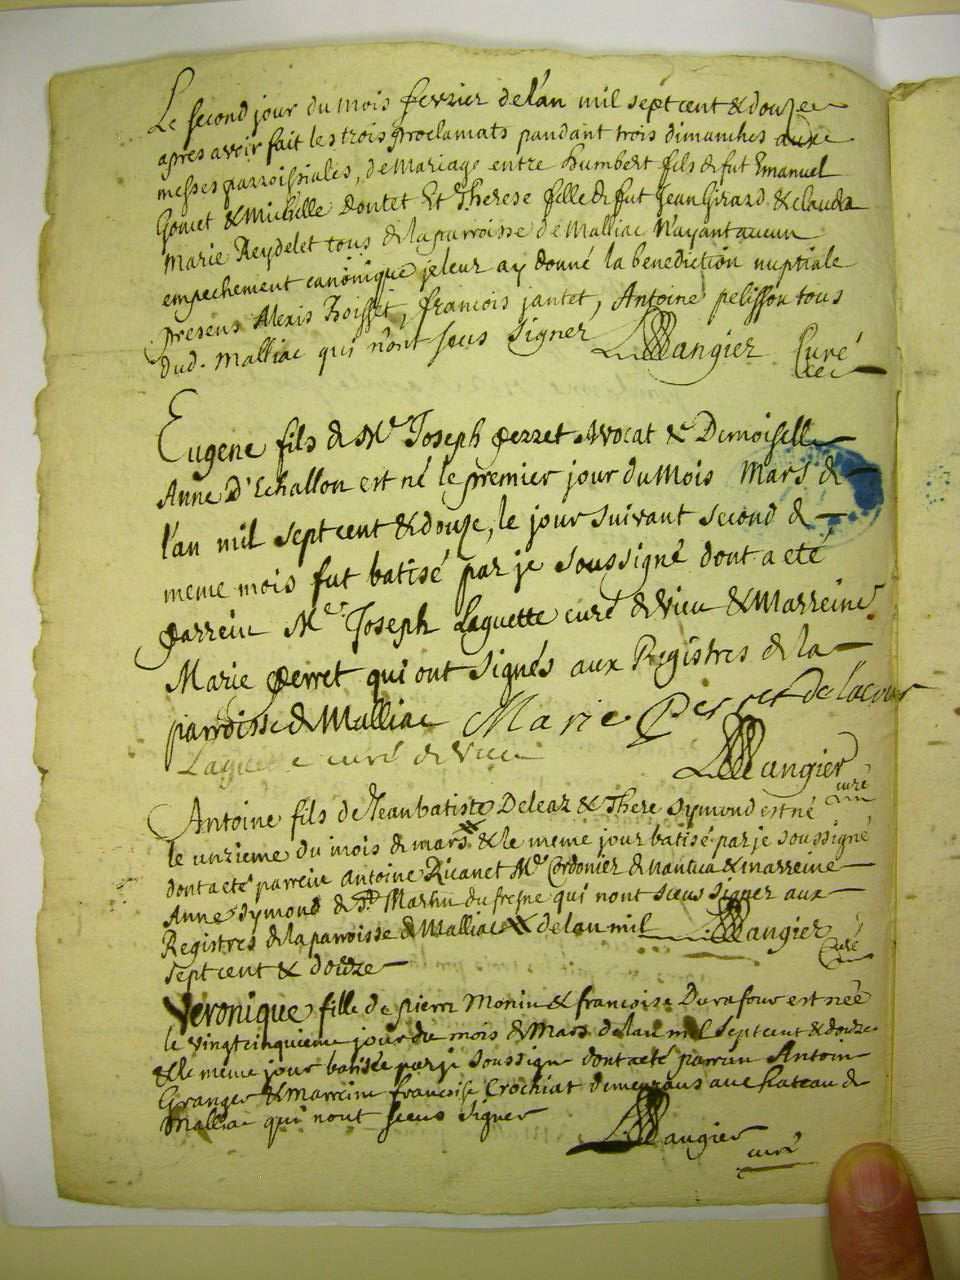 Le second jour du mois fevrier de l'an mil sept cent & douze
apres avoir fait les trois proclamats pandant trois dimanches aux
messes parroissiales, de Mariage entre humbert fils de fut Emanuel
Goujet & Michelle Doutet Et Therese fille de fut Jean Girard & clauda
Marie Reydelet tous de la parroisse de Malliac N'ayant aucun
empechement canonique je leur ay donné la benediction nuptiale
presens Alexis froisset, francois jantet, Antoine pelisson tous
dud. Malliac qui n'ont sceus signer Laugier Curé
Eugene fils de Mr Joseph perret Avocat & Demoiselle
Anne D'Echallon est né le premier jour du Mois Mars de
l'an mil sept cent & douze, le jour suivant second de
meme mois fut batisé par je soussigné dont a eté
parrein Mre Joseph Laguette curé de Vieu & Marreine
Marie perret qui ont signés aux Registres de la
parroisse de Malliac Marie Perret de lacour
Laguette curé de Vieu
Laugier curé
Antoine fils de Jean batiste Deleaz & There Symond est né
le unzieme du mois de mars & le meme jour batisé par je soussigné
dont a eté parrein antoine Ricanet Me Cordonier de nantua & marreine
Anne Symond de St Martin du fresne qui n'ont sceus signer aux
Registres de la parroisse de Malliac de lan mil Laugier Curé
sept cent & douze
Veronique fille de pierre Monin & francoise Durafour est née
le vingtcinquieme jour du mois de Mars de lan mil sept cent & douze
& le meme jour batisée par je soussigné dont a eté parrein Antoine
Granger & Marreine francoise Crochiat demeurans au chateau de
Malliac qui n'ont sceus signer
Laugier curé